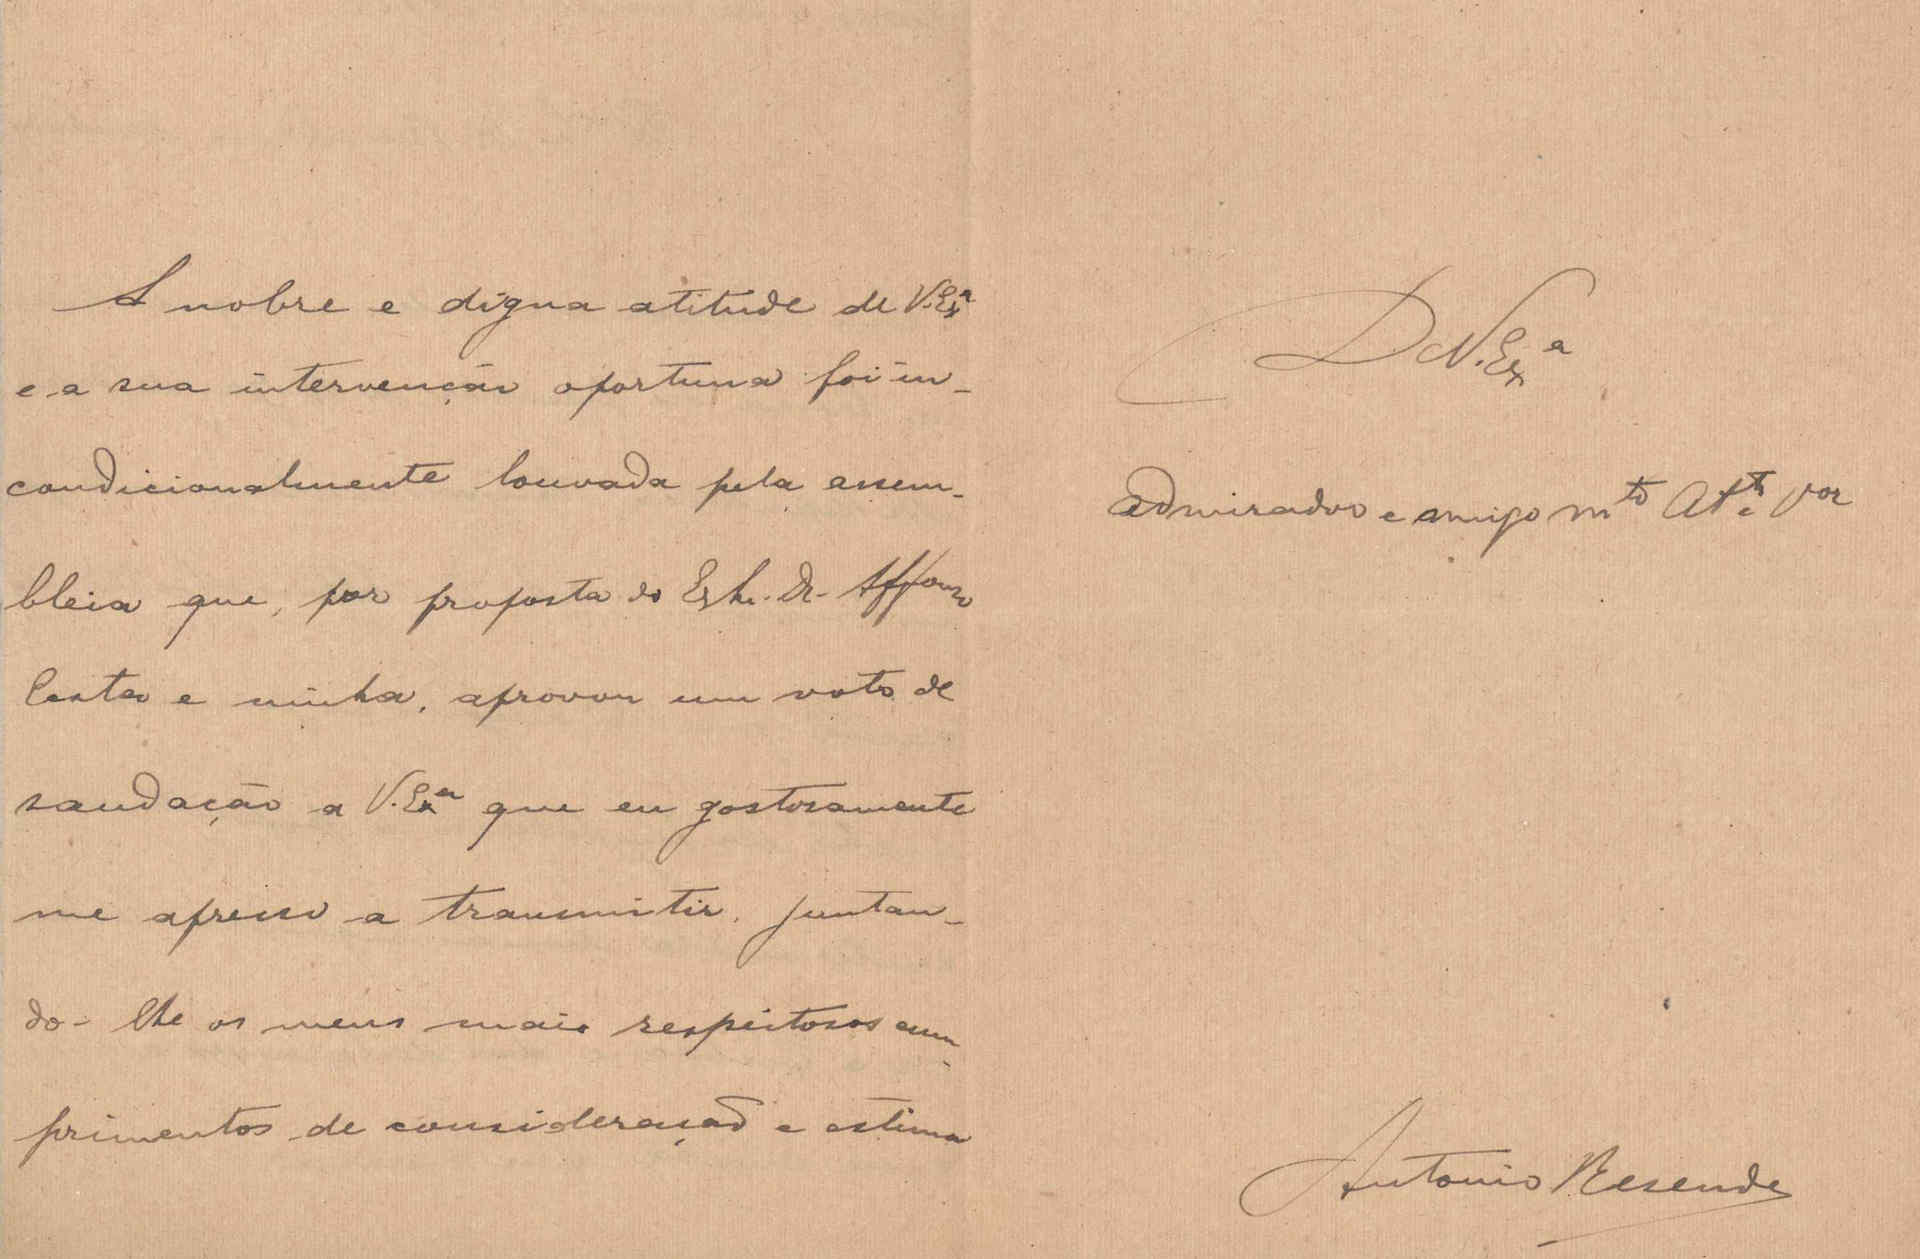 A nobre e digna atitude de V. Exª
e a sua intervenção oportuna foi in-
condicionalmente louvada pela assem-
bleia que, por proposta do Dr. Affonso
e minha, aprovou um voto de
saudação a V. Exª que eu gostosamente
me apresso a transmitir, juntan-
do-lhe os meus mais respeitosos cum-
primentos de consideração e estima
D V. Exª
admirador e amigo mto Atto Vor
Antonio Resende